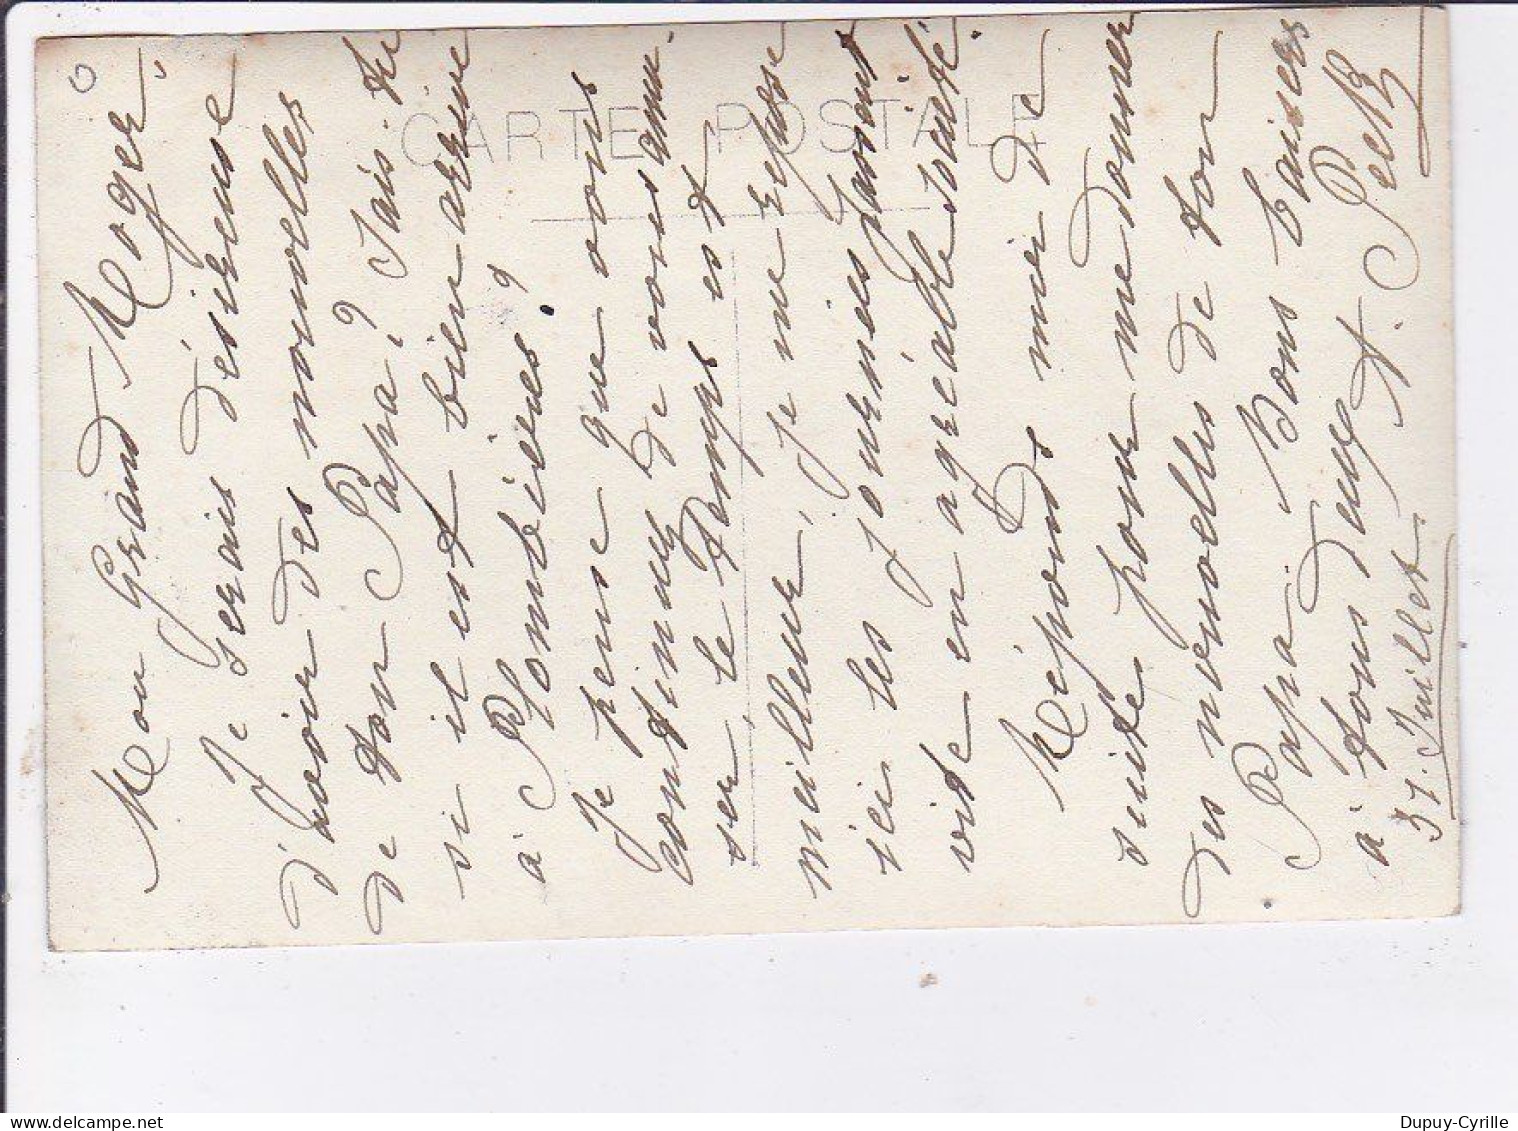 Mon Grand Roger,
Je serais désireuse
d'avoir des nouvelles
de ton Papa? Sais-tu
si il est bien arrivé
à Plombières?
Je pense que vous
continuez de vous amu-
ser, le temps est
meilleur, je me repose
ici les journées passent
vite en agréable société.
Réponds moi de
suite pour me donner
des nouvelles de ton
Papa. Bons baisers
à tous deux
31. Juillet
CARTE POSTALE
www.delcampe.net
Dupuy-Cyrille